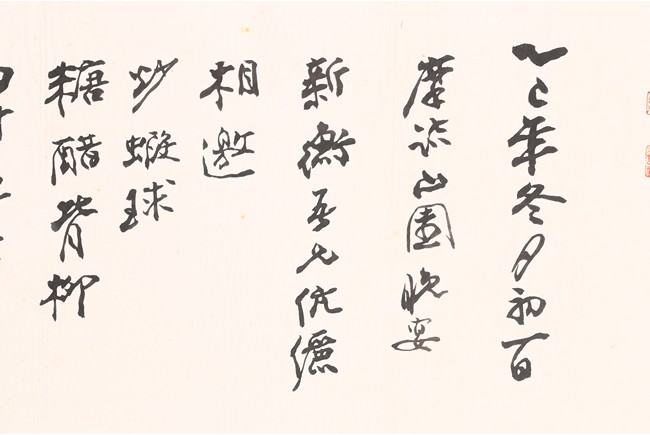 乙巳年冬月初一日
摩詰山園晚宴
新衡吾兄伉儷
相邀
炒蝦球
糖醋背柳